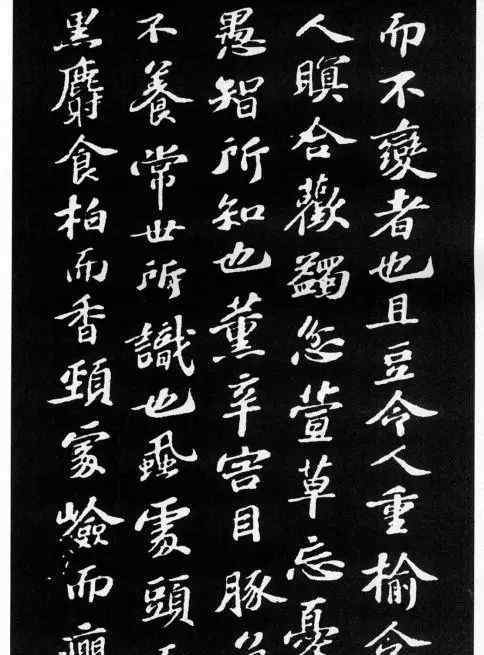 而不變者也且豆令人重榆令
人瞑合歡蠲忿萱草忘憂
愚智所知也薰辛害目豚
不養常世所識也蝨處頭
黑麝食柏而香頸處險而癭